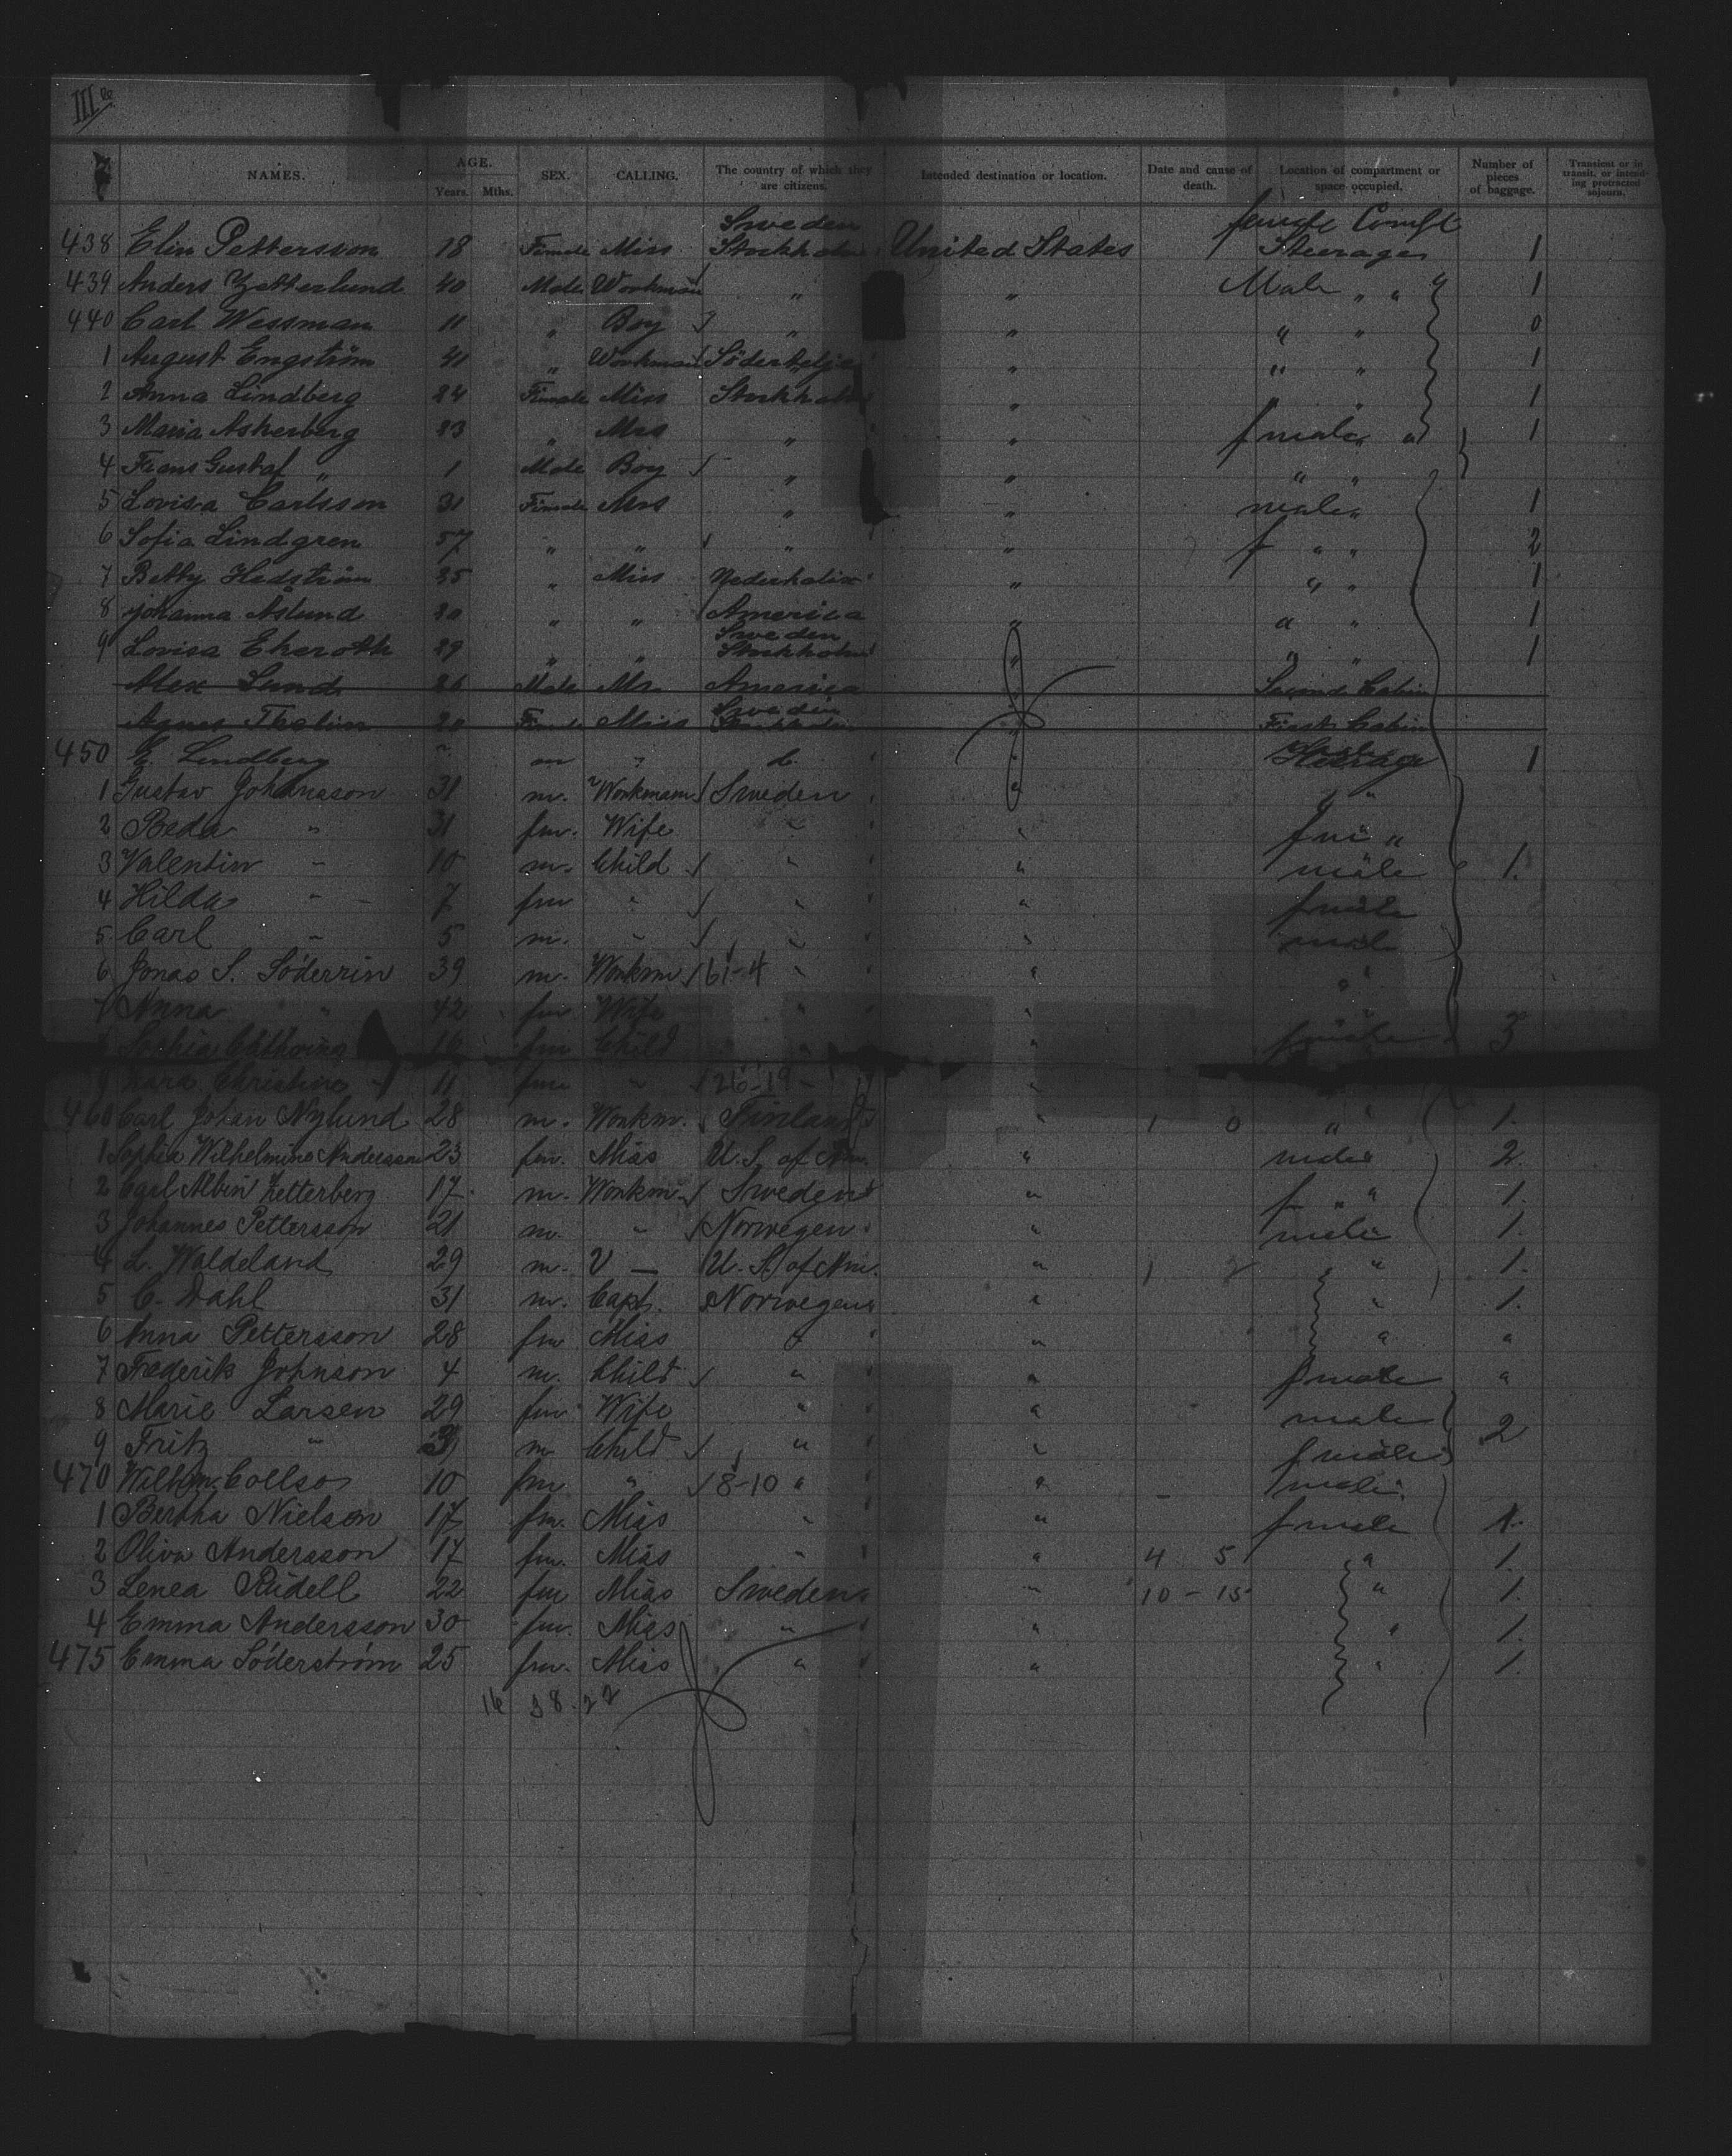 III
NAMES. AGE. Years. Mths. SEX. CALLING. The country of which they are citizens. Intended destination or location. Date and cause of death. Location of compartment or space occupied. Number of pieces of baggage. Transient or in transit, or intending protracted sojourn.
Sweden
438 Elin Pettersson 18 Female Miss Stockholm United States Steerage 1
439 Anders Zetterlund 40 Male Workman " " Male " " 1
440 Carl Wessman 11 " Boy " " " " 0
1 August Engström 41 " Workman Södertelje " " " 1
2 Anna Lindberg 24 Female Miss Stockholm " " " 1
3 Maria Askerberg 23 " Mrs " " fmale " 1
4 Frans Gustaf " 1 Male Boy " " " "
5 Lovisa Carlsson 31 Female Mrs " " male " 1
6 Sofia Lindgren 57 " " " " f " " 2
7 Betty Hedström 25 " Miss Nederkalix " " " 1
8 Johanna Åslund 20 " " America " " " 1
9 Lovisa Ekeroth 29 " " Sweden Stockholm " " " 1
Alex Lund 26 Male Mr America " Second Cabin
Agnes Thelin 20 Female Miss Sweden Stockholm " First Cabin
450 E. Lindberg m " Steerage 1
1 Gustav Johansson 31 m. Workmann Sweden " " "
2 Beda " 31 fm. Wife " " fm "
3 Valentin " 10 m. Child " " male 1.
4 Hilda " 7 fm " " " fmale
5 Carl " 5 m. " " " male
6 Jonas S. Söderrin 39 m. Workm 61-4 " " "
7 Anna " 42 fm Wife " "
Child " " fmale 3
9 Christine " 11 fm " 26-19 "
460 Carl Johan Nylund 28 m. Workm. Finland " 1 0 " " 1.
1 Sophia Wilhelmina Andersson 23 fm. Miss U.S. of Am. " male 2.
2 Carl Albin Zetterberg 17 m. Workm. Sweden " f " " 1.
3 Johannes Pettersson 21 m. " Norwegen " male 1.
4 L. Waldeland 29 m. V — U.S. of Am. " 1 2 " " 1.
5 C. Dahl 31 m. Capt. Norwegen " " 1.
6 Anna Pettersson 28 fm Miss " " " "
7 Frederik Johnson 4 m. Child " " fmale "
8 Marie Larsen 29 fm Wife " " male 2
9 Fritz " 3 m Child " " fmale
470 Wilhm. 10 fm " 8-10 " " male
1 Bertha Nielson 17 fm. Miss " " fmale 1.
2 Oliva Andersson 17 fm. Miss " " 4 5 " 1.
3 Lenea Rüdell 22 fm Miss Sweden " 10-15 " 1.
4 Emma Andersson 30 fm. Miss " " " 1.
475 Emma Söderström 25 fm. Miss " " " 1.